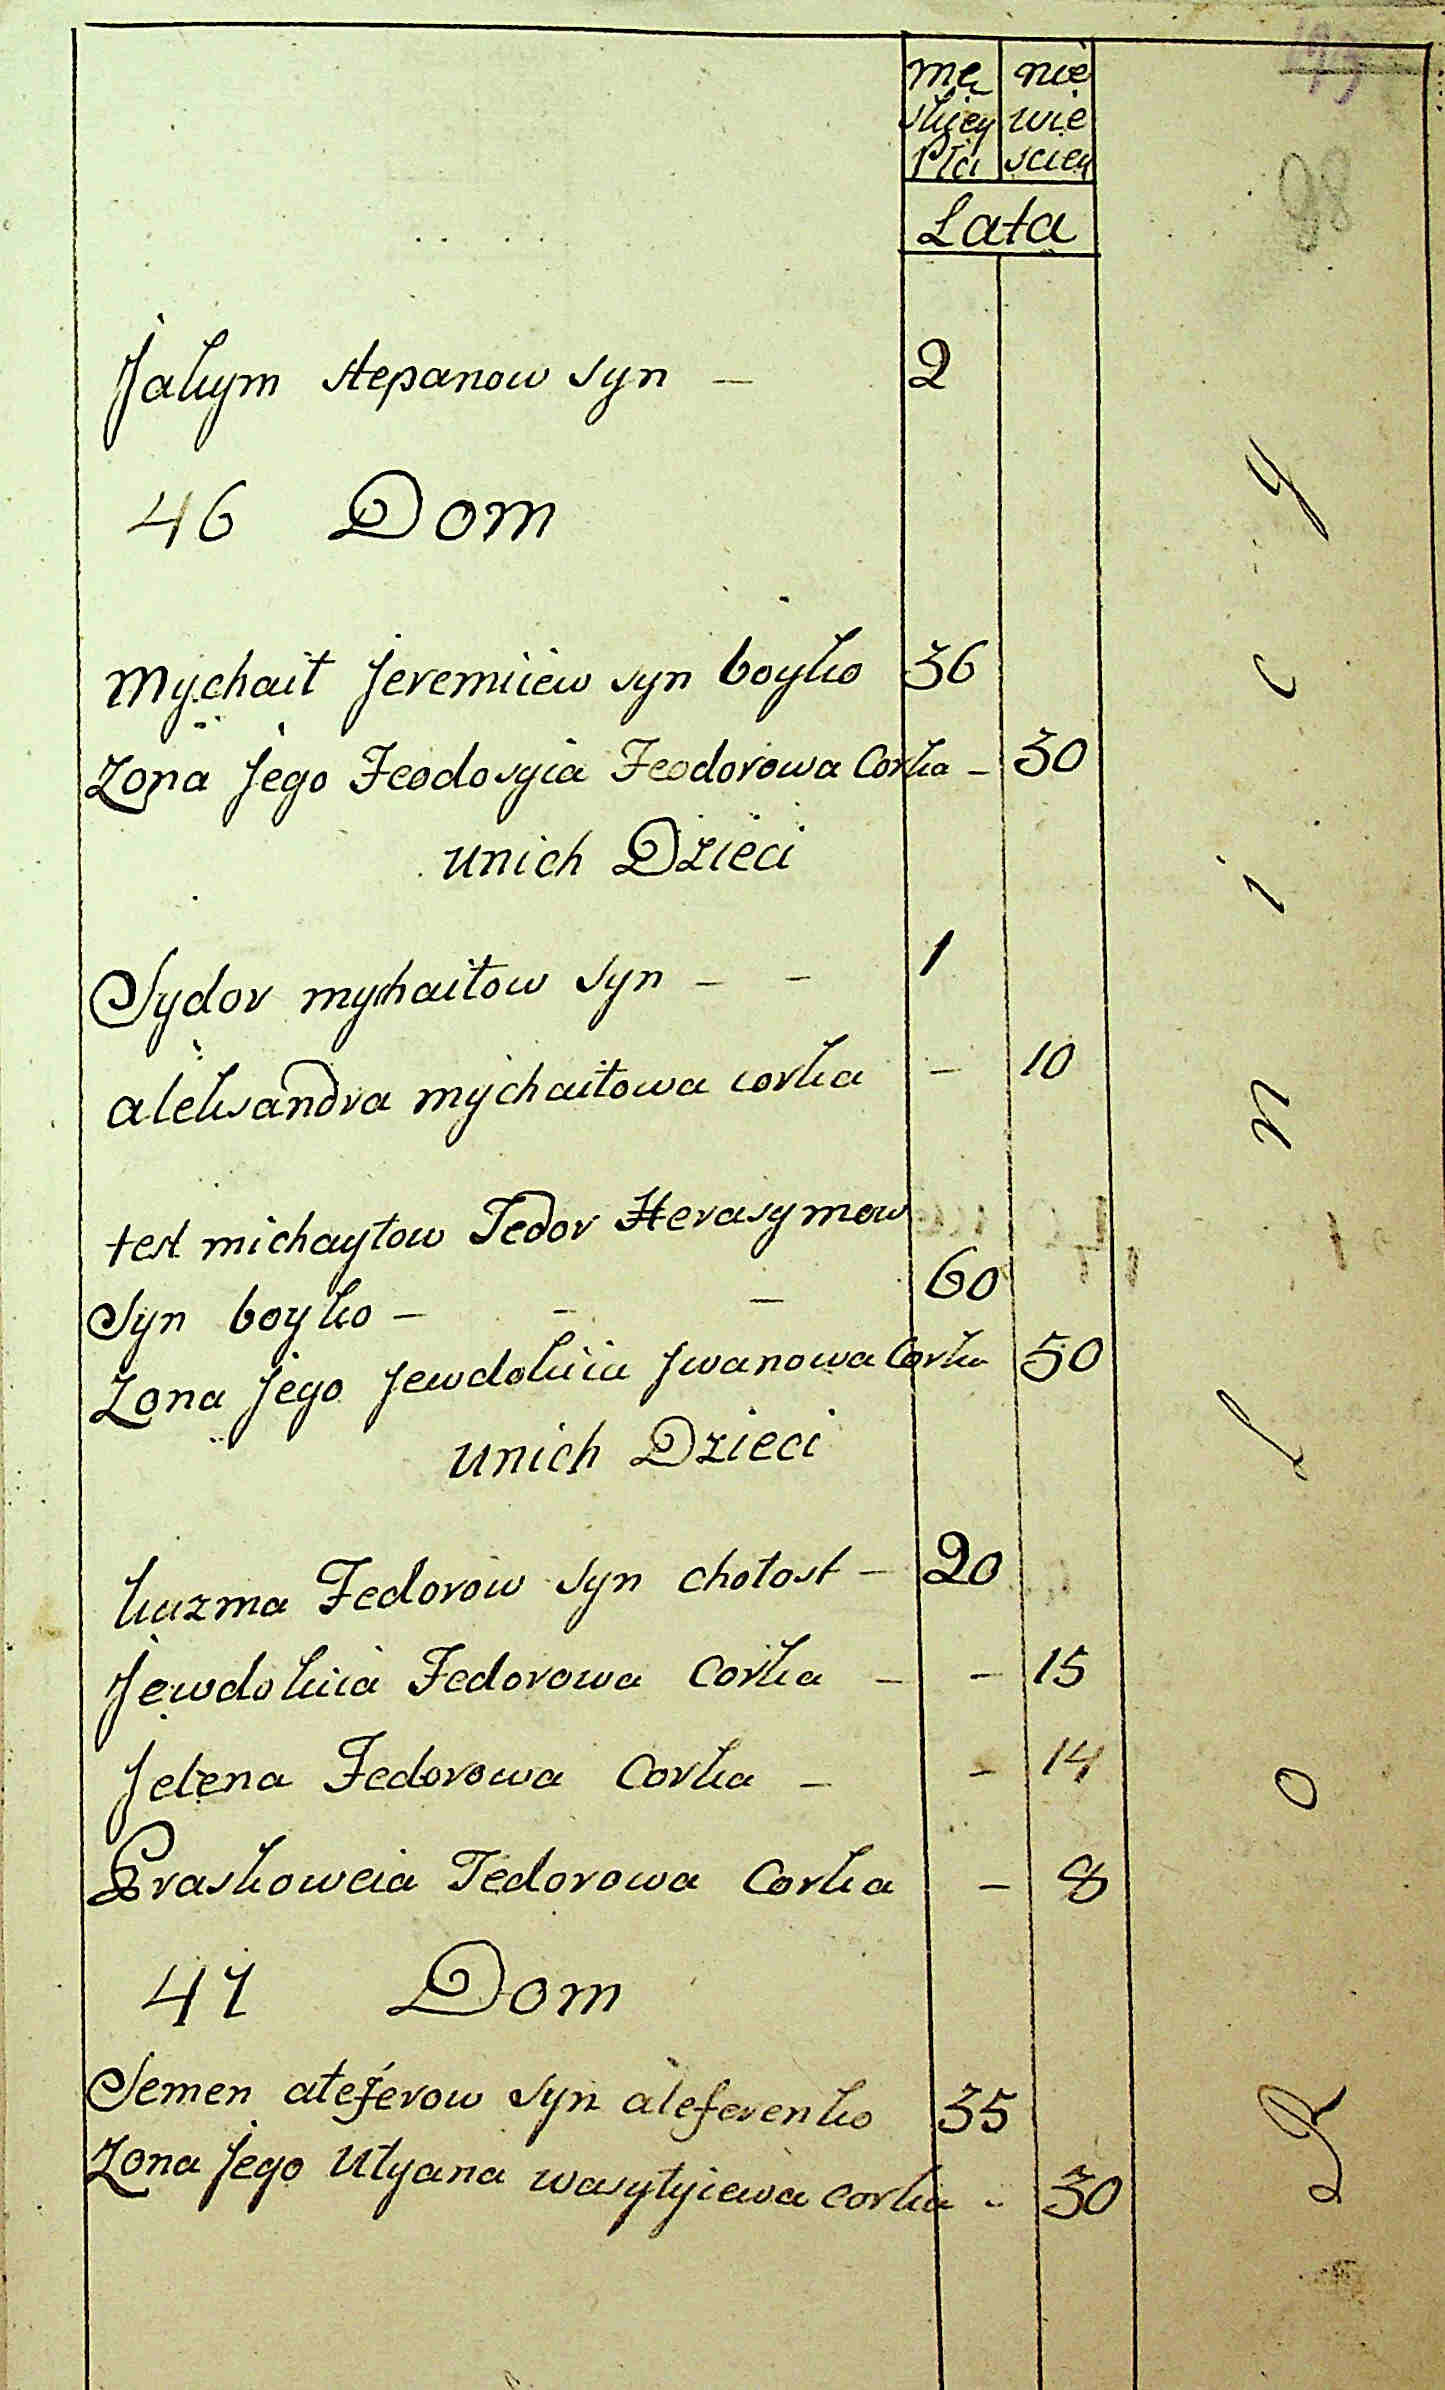 mę nie
skiey wie
Płci sciey
Lata
98
Jakym stepanow syn – 2
46 Dom
Mychaił Jeremiiew syn boyko 36
Zona Jego Feodosyia Feodorowa Corka – 30
unich Dzieci
Sydor mychaiłow syn – – 1
aleksandra mychaiłowa corka – 10
test michayłow Fedor Herasymow
Syn boyko – – – 60
Zona Jego Jewdokiia Jwanowa Corka 50
unich Dzieci
kuzma Fedorow syn chołost – 20
Jewdokiia Fedorowa Corka – – 15
Jełena Fedorowa Corka – – 14
Praskoweia Fedorowa Corka – 8
47 Dom
Semen ałeferow syn aleferenko 35
Zona Jego Ulyana wasyłyiewa corka – 30
Rolnicy